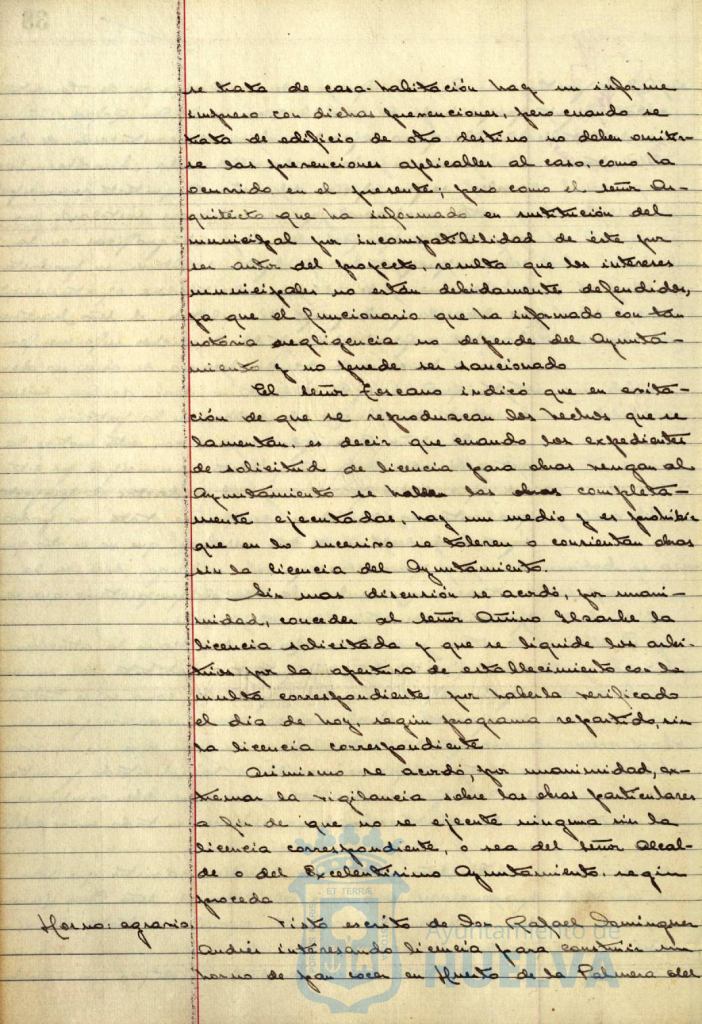 38
se trata de casa-habitación hay un informe
impreso con dichas prevenciones, pero cuando se
trata de edificio de otro destino no deben omitir-
se las prevenciones aplicables al caso, como ha
ocurrido en el presente; pero como el señor Ar-
quitecto que ha informado en sustitución del
municipal por incompatibilidad de éste por
ser autor del proyecto, resulta que los intereses
municipales no están debidamente defendidos,
ya que el funcionario que ha informado con tan
notória negligencia no depende del Ayunta-
miento y no puede ser sancionado
El señor Toscano indicó que en evita-
ción de que se reproduzcan los hechos que se
lamentan, es decir que cuando los expedientes
de solicitud de licencia para obras vengan al
Ayuntamiento se hallen las obras completa-
mente ejecutadas, hay un medio y es prohibir
que en lo sucesivo se toleren o consientan obras
sin la licencia del Ayuntamiento.
Sin mas discusión se acordó, por unani-
midad, conceder al señor la
licencia solicitada y que se liquide los arbi-
trios por la apertura de establecimiento con la
multa correspondiente por haberla verificado
el día de hoy, según programa repartido, sin
la licencia correspondiente
Asimismo se acordó, por unanimidad, ex-
tremar la vigilancia sobre las obras particulares
a fin de que no se ejecute ninguna sin la
licencia correspondiente, o sea del señor Alcal-
de o del Excelentísimo Ayuntamiento, según
proceda
Horno: agrario.
Visto escrito de Don Rafael Dominguez
Andrés interesando licencia para construir un
horno de pan cocer en Huerto de la Palmera del
ET TERRÆ
Ayuntamiento de
HUELVA